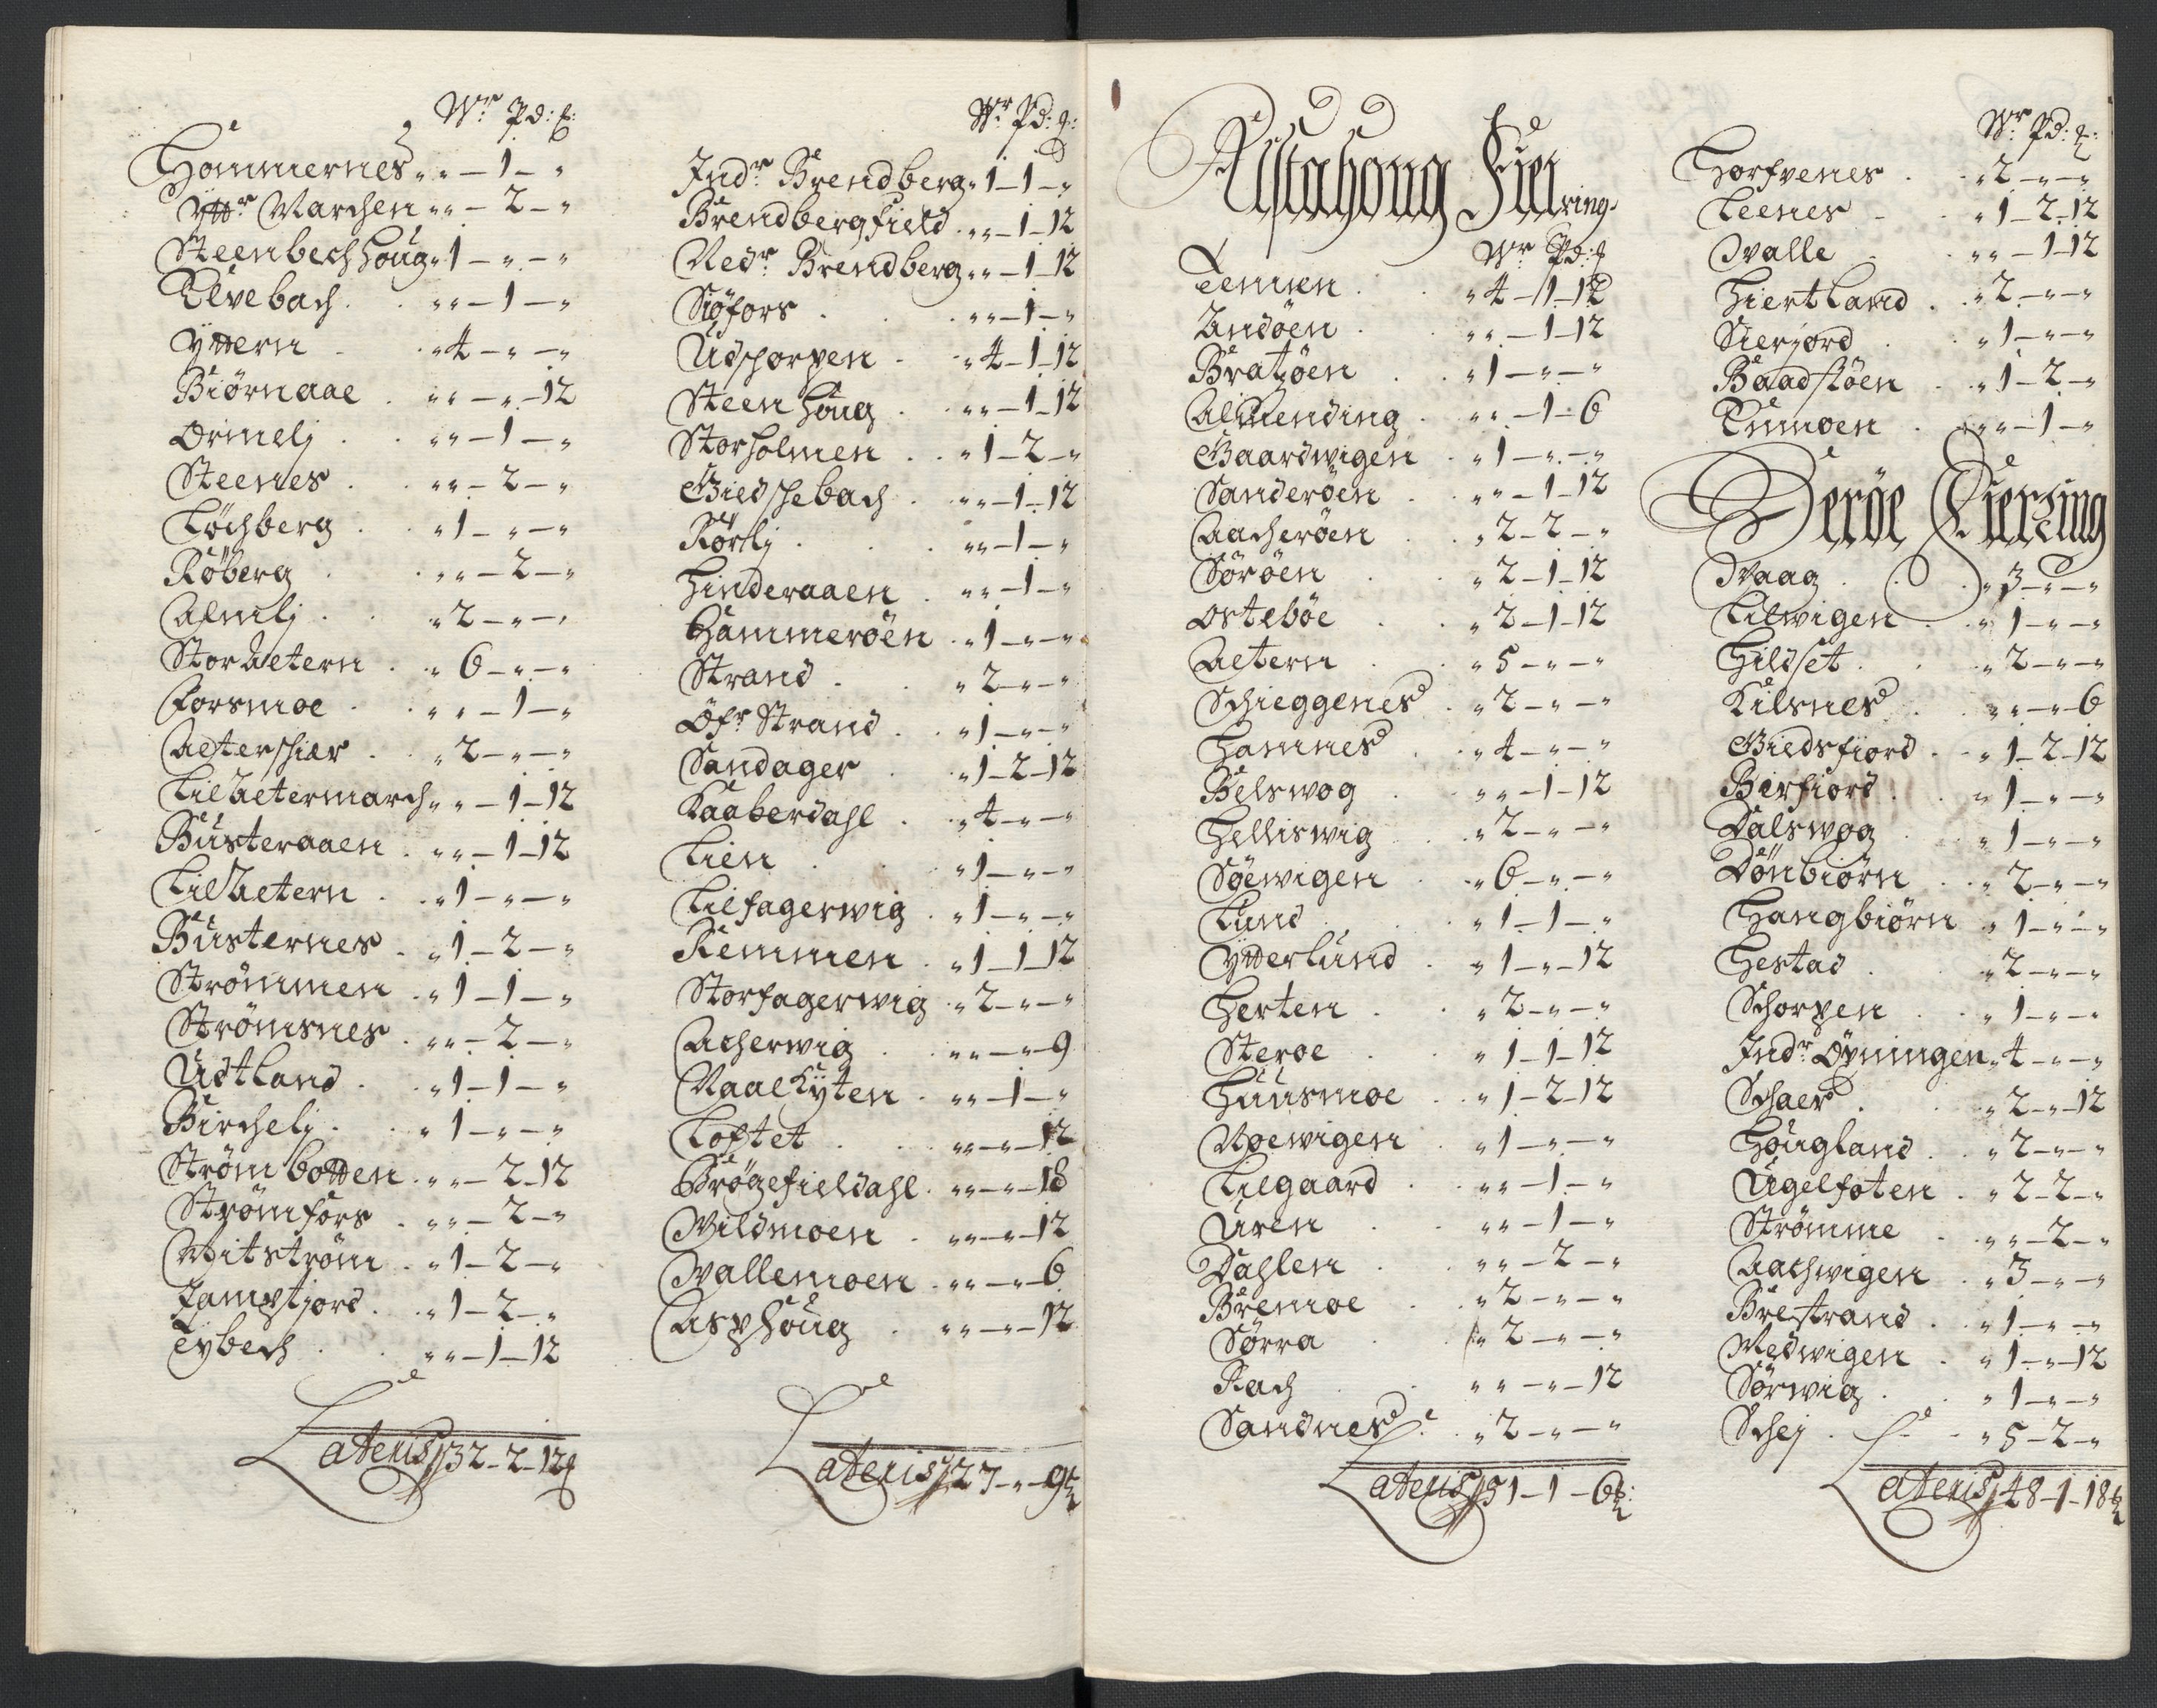 Wr Pd: ℔:
Hammernes „ „ – 1 – „
Yttr Marchen „ „ – 2 – „
Steenbechhoug „ 1 – „ – „
Elvebach . „ „ – 1 – „
Yttern . „ 4 – „ – „
Biörnaae . „ „ – „ – 12
Ormelj . „ „ – 1 – „
Steenes . „ „ – 2 – „
Löchberg . „ 1 – „ – „
Röberg . „ „ – 2 – „
Almlj . „ 2 – „ – „
StorAetern . „ 6 – „ – „
Forsmoe . „ „ – 1 – „
Aeterschier . „ 2 – „ – „
LilAetermarch „ „ – 1 – 12
Busteraaen . „ „ – 1 – 12
LilAetern . „ 1 – „ – „
Busternes . „ 1 – 2 – „
Strömmen . „ 1 – 1 – „
Strömsnes . „ „ – 2 – „
Udtland . „ 1 – 1 – „
Birchelj . „ 1 – „ – „
Strömbotten . „ „ – 2 – 12
Strömfors . „ „ – 2 – „
Mitström . „ 1 – 2 – „
Jamptjord . „ 1 – 2 – „
Tybech . „ „ – 1 – 12
Lateris 32 – 2 – 12 ℔
Wr Pd: ℔:
Indr Brendberg „ 1 – 1 – „
Brendbergfield . „ „ – 1 – 12
Nedr Brendberg „ „ – 1 – 12
Siöfors . „ „ – 1 – „
Udschorpen . „ 4 – 1 – 12
Steenhoug . „ „ – 1 – 12
Storholmen . „ 1 – 2 – „
Giedschebach . „ „ – 1 – 12
Rörlj . „ „ – 1 – „
Hinderaaen . „ „ – 1 – „
Hammeröen . „ 1 – „ – „
Strand . „ 2 – „ – „
Öfr Strand . „ 1 – „ – „
Sandager . „ 1 – 2 – 12
Kaaberdahl . „ 4 – „ – „
Lien . „ 1 – „ – „
Lilfagerwig . „ 1 – „ – „
Remmen . „ 1 – 1 – 12
Storfagerwig . „ 2 – „ – „
Acherwig . „ „ – „ – 9
Naalkyten . „ „ – 1 – „
Loftet . „ „ – „ – 12
Brögefieldahl . „ „ – „ – 18
Wildmoen . „ „ – „ – 12
Wallemoen . „ „ – „ – 6
Asphoug . „ „ – „ – 12
Lateris 27 – „ – 9 ℔
Alstahoug Fierring
Wr Pd: ℔
Lemen . „ 4 – 1 – 12
Andöen . „ „ – 1 – 12
Bratzöen . „ 1 – „ – „
Almending . „ „ – 1 – 6
Gaardwigen . „ 1 – „ – „
Sanderöen . „ „ – 1 – 12
Aacheröen . „ 2 – 2 – „
Söröen . „ 2 – 1 – 12
Osteböe . „ 2 – 1 – 12
Aetern . „ 5 – „ – „
Schieggenes . „ 2 – „ – „
Hamnes . „ 4 – „ – „
Belswog . „ „ – 1 – 12
Helliswig . „ 2 – „ – „
Söewigen . „ 6 – „ – „
Lund . „ 1 – 1 – „
Ytterlund . „ 1 – „ – 12
Herten . „ 2 – „ – „
Steroe . „ 1 – 1 – 12
Huusmoe . „ 1 – 2 – 12
Noewigen . „ 1 – „ – „
Lilgaard . „ „ – 1 – „
Uren . „ „ – 1 – „
Dahlen . „ „ – 2 – „
Bremoe . „ 2 – „ – „
Sörra . „ 2 – „ – „
Rach . „ „ – „ – 12
Sandnes . „ 2 – „ – „
Lateris 51 – 1 – 6 ℔:
Wr Pd: ℔:
Horfvenes . „ 2 – „ – „
Leenes . „ 1 – 2 – 12
Walle . „ „ – 1 – 12
Hiertland . „ 2 – „ – „
Sierjord . „ 1 – „ – „
Baadstöen . „ 1 – 2 – „
Einmoen . „ „ – 1 – „
Heröe Fierring
Waag . „ 3 – „ – „
Lilwigen . „ 1 – „ – „
Hildset . „ 2 – „ – „
Kilsnes . „ „ – „ – 6
Giedsfiord . „ 1 – 2 – 12
Berfiord . „ 1 – „ – „
Dalswog . „ 1 – „ – „
Dönbiörn . „ 2 – „ – „
Hangbiörn . „ 1 – „ – „
Hestad . „ 2 – „ – „
Schorpen . „ 1 – „ – „
Indr Öpningen „ 4 – „ – „
Schaer . „ 2 – „ – 12
Hougland . „ 2 – „ – „
Ugelfoten . „ 2 – 2 – „
Strömme . „ „ – 2 – „
Aachwigen . „ 3 – „ – „
Brestrand . „ 1 – „ – „
Medwigen . „ 1 – „ – 12
Sörwig . „ 1 – „ – „
Schej . „ 5 – 2 – „
Lateris 48 – 1 – 18 ℔